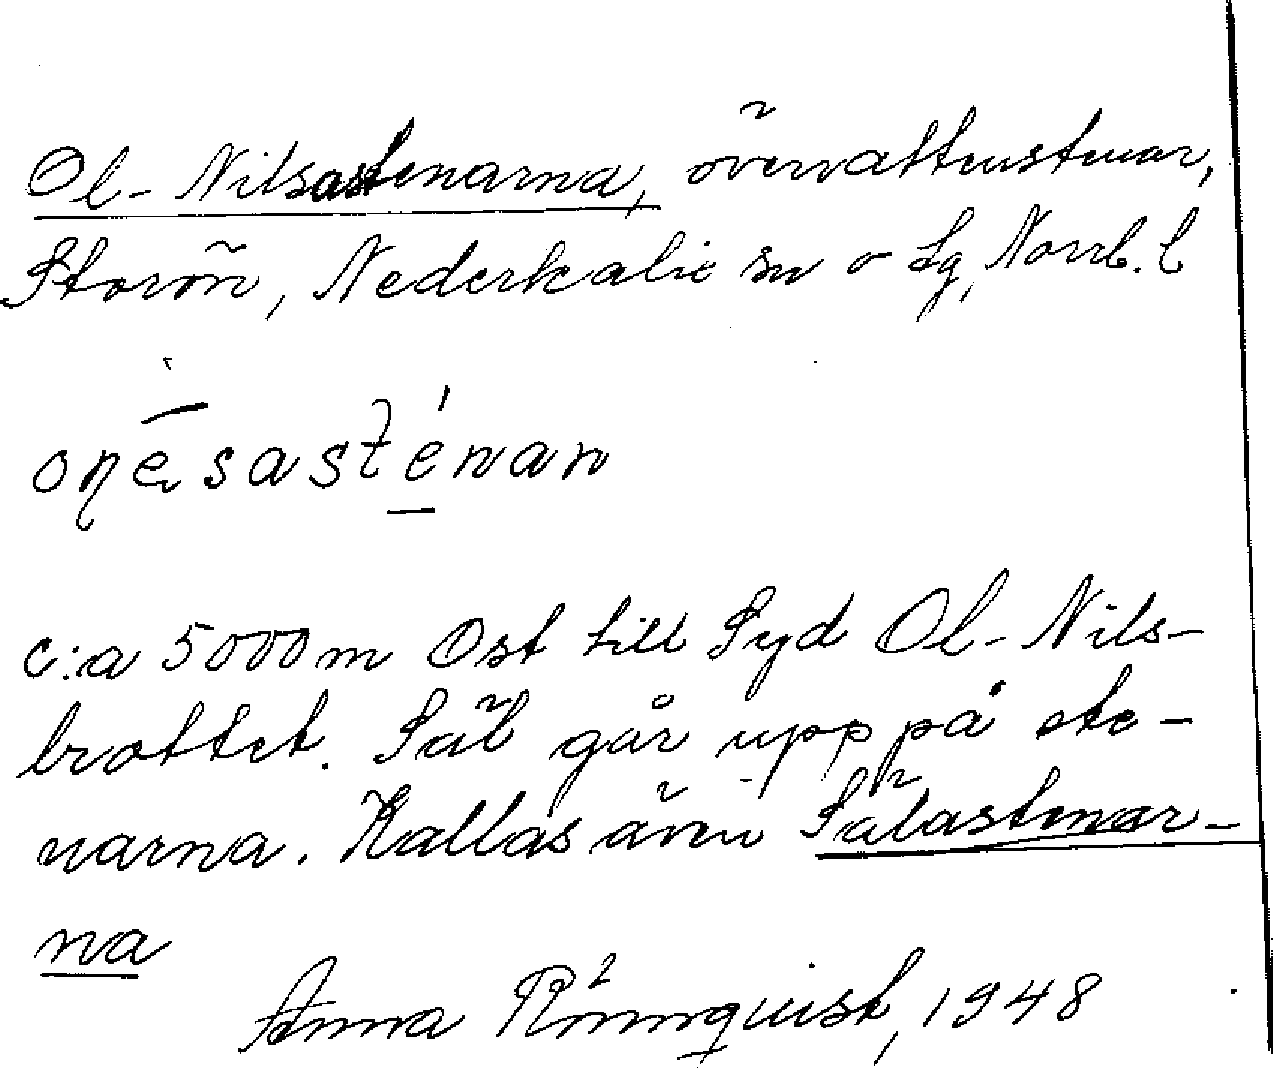 Ol-Nilsastenarna, övervattenstenar,
Storön, Nederkalix sn o Lg, Norrb. l
onesasténan
c:a 5000 m Ost till Syd Ol-Nils-
brottet. Säl går upp på ste-
narna. Kallas även Sälastenar-
na
Anna Rönnquist, 1948